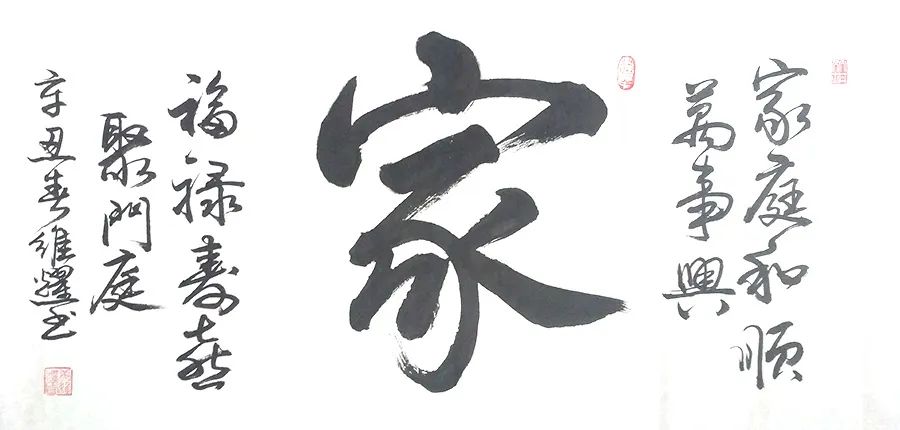 家庭和顺
萬事興
家
福禄寿喜
聚門庭
辛丑春維耀书